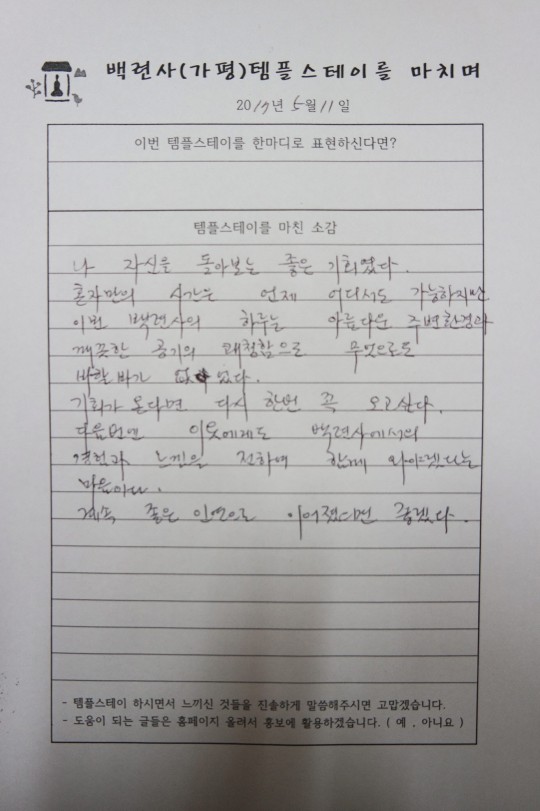 백련사(가평)템플스테이를 마치며
2019년 5월 11일
이번 템플스테이를 한마디로 표현하신다면?
템플스테이를 마친 소감
나 자신을 돌아보는 좋은 기회였다.
혼자만의 시간은 언제 어디서도 가능하지만
이번 백련사의 하루는 아름다운 주변환경과
깨끗한 공기의 쾌청함으로 무엇으로도
바랄바가 없었다.
기회가 온다면 다시 한번 꼭 오고싶다.
다음번엔 이웃에게도 백련사에서의
경험과 느낌을 전하여 함께 와야겠다는
마음이다.
계속 좋은 인연으로 이어졌으면 좋겠다.
- 템플스테이 하시면서 느끼신 것들을 진솔하게 말씀해주시면 고맙겠습니다.
- 도움이 되는 글들은 홈페이지 올려서 홍보에 활용하겠습니다. ( 예 , 아니요 )